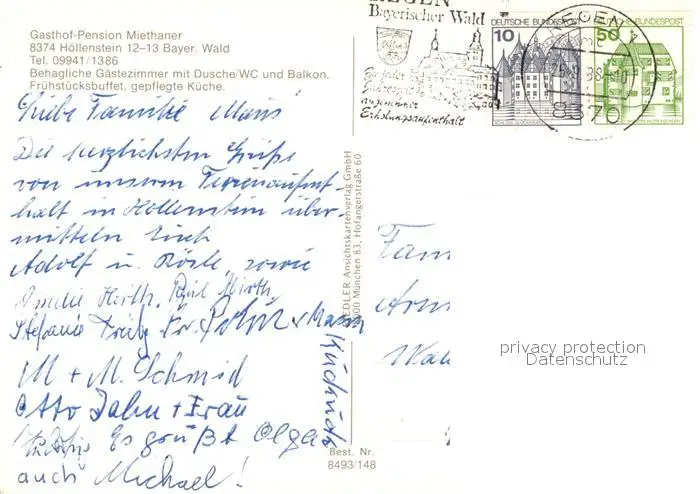 Gasthof-Pension Miethaner
8374 Höllenstein 12–13 Bayer. Wald
Tel. 09941/1386
Behagliche Gästezimmer mit Dusche/WC und Balkon.
Frühstücksbuffet, gepflegte Küche.
REGEN
Bayerischer Wald
angenehmer
Erholungsaufenthalt
DEUTSCHE BUNDESPOST
10
DEUTSCHE BUNDESPOST
50
REGEN
8370
Liebe Familie Maus
Die herzlichsten Grüße
von unserem Ferienaufent-
halt in Höllenstein über-
mitteln Euch
Adolf u. Rösle, sowie
Amelie Hirth,
Stefanie
M + M. Schmid
Otto Jahn + Frau
Es grüßt Olga
auch Michael!
ansichtskartenverlag GmbH
München 83, Hofangerstraße 60
Best. Nr.
8493/148
Fam
privacy protection
Datenschutz